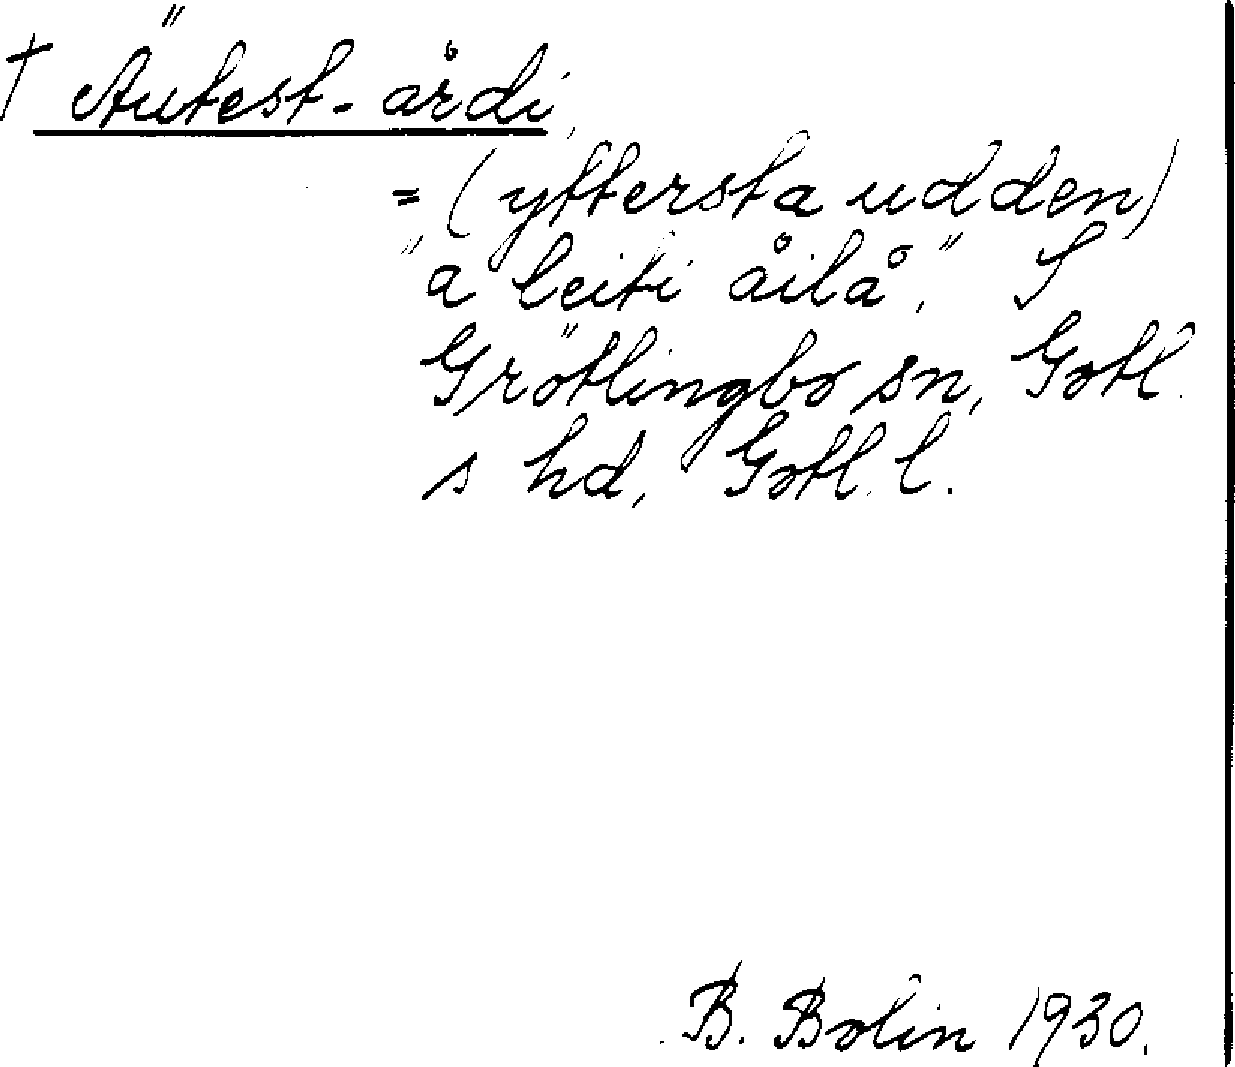 † Äutest-årdi,
= (yttersta udden)
"a leiti åilå", S
Grötlingbo sn, Gotl.
s hd, Gotl. l.
B. Bolin 1930.